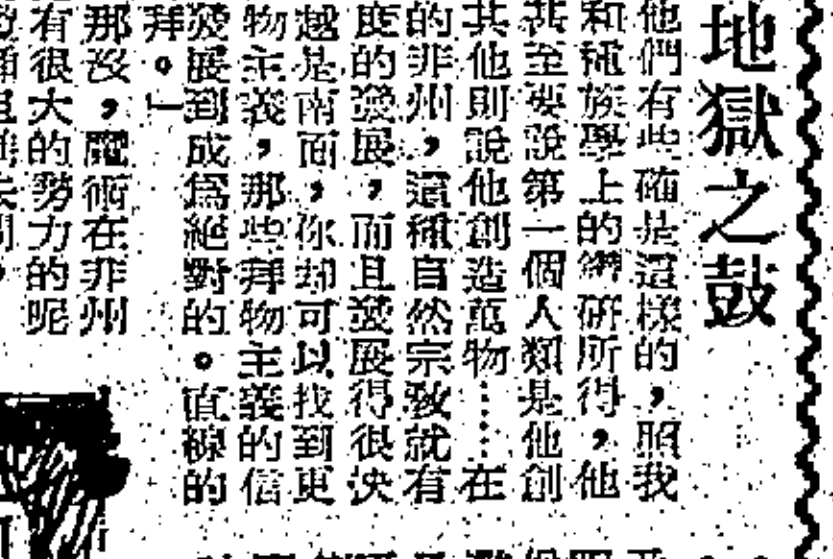 地獄之鼓
他們有些確是這樣的，照我
和種族學上的鑽研所得，他
甚至要說第一個人類是他創
其他則說他創造萬物……在
的非州，這種自然宗敎就有
度的發展，而且發展得很快
越是南面，你却可以找到更
物主義，那些拜物主義的信
發展到成爲絕對的。直線的
拜。」
那沒，魔術在非州
有很大的勢力的呢